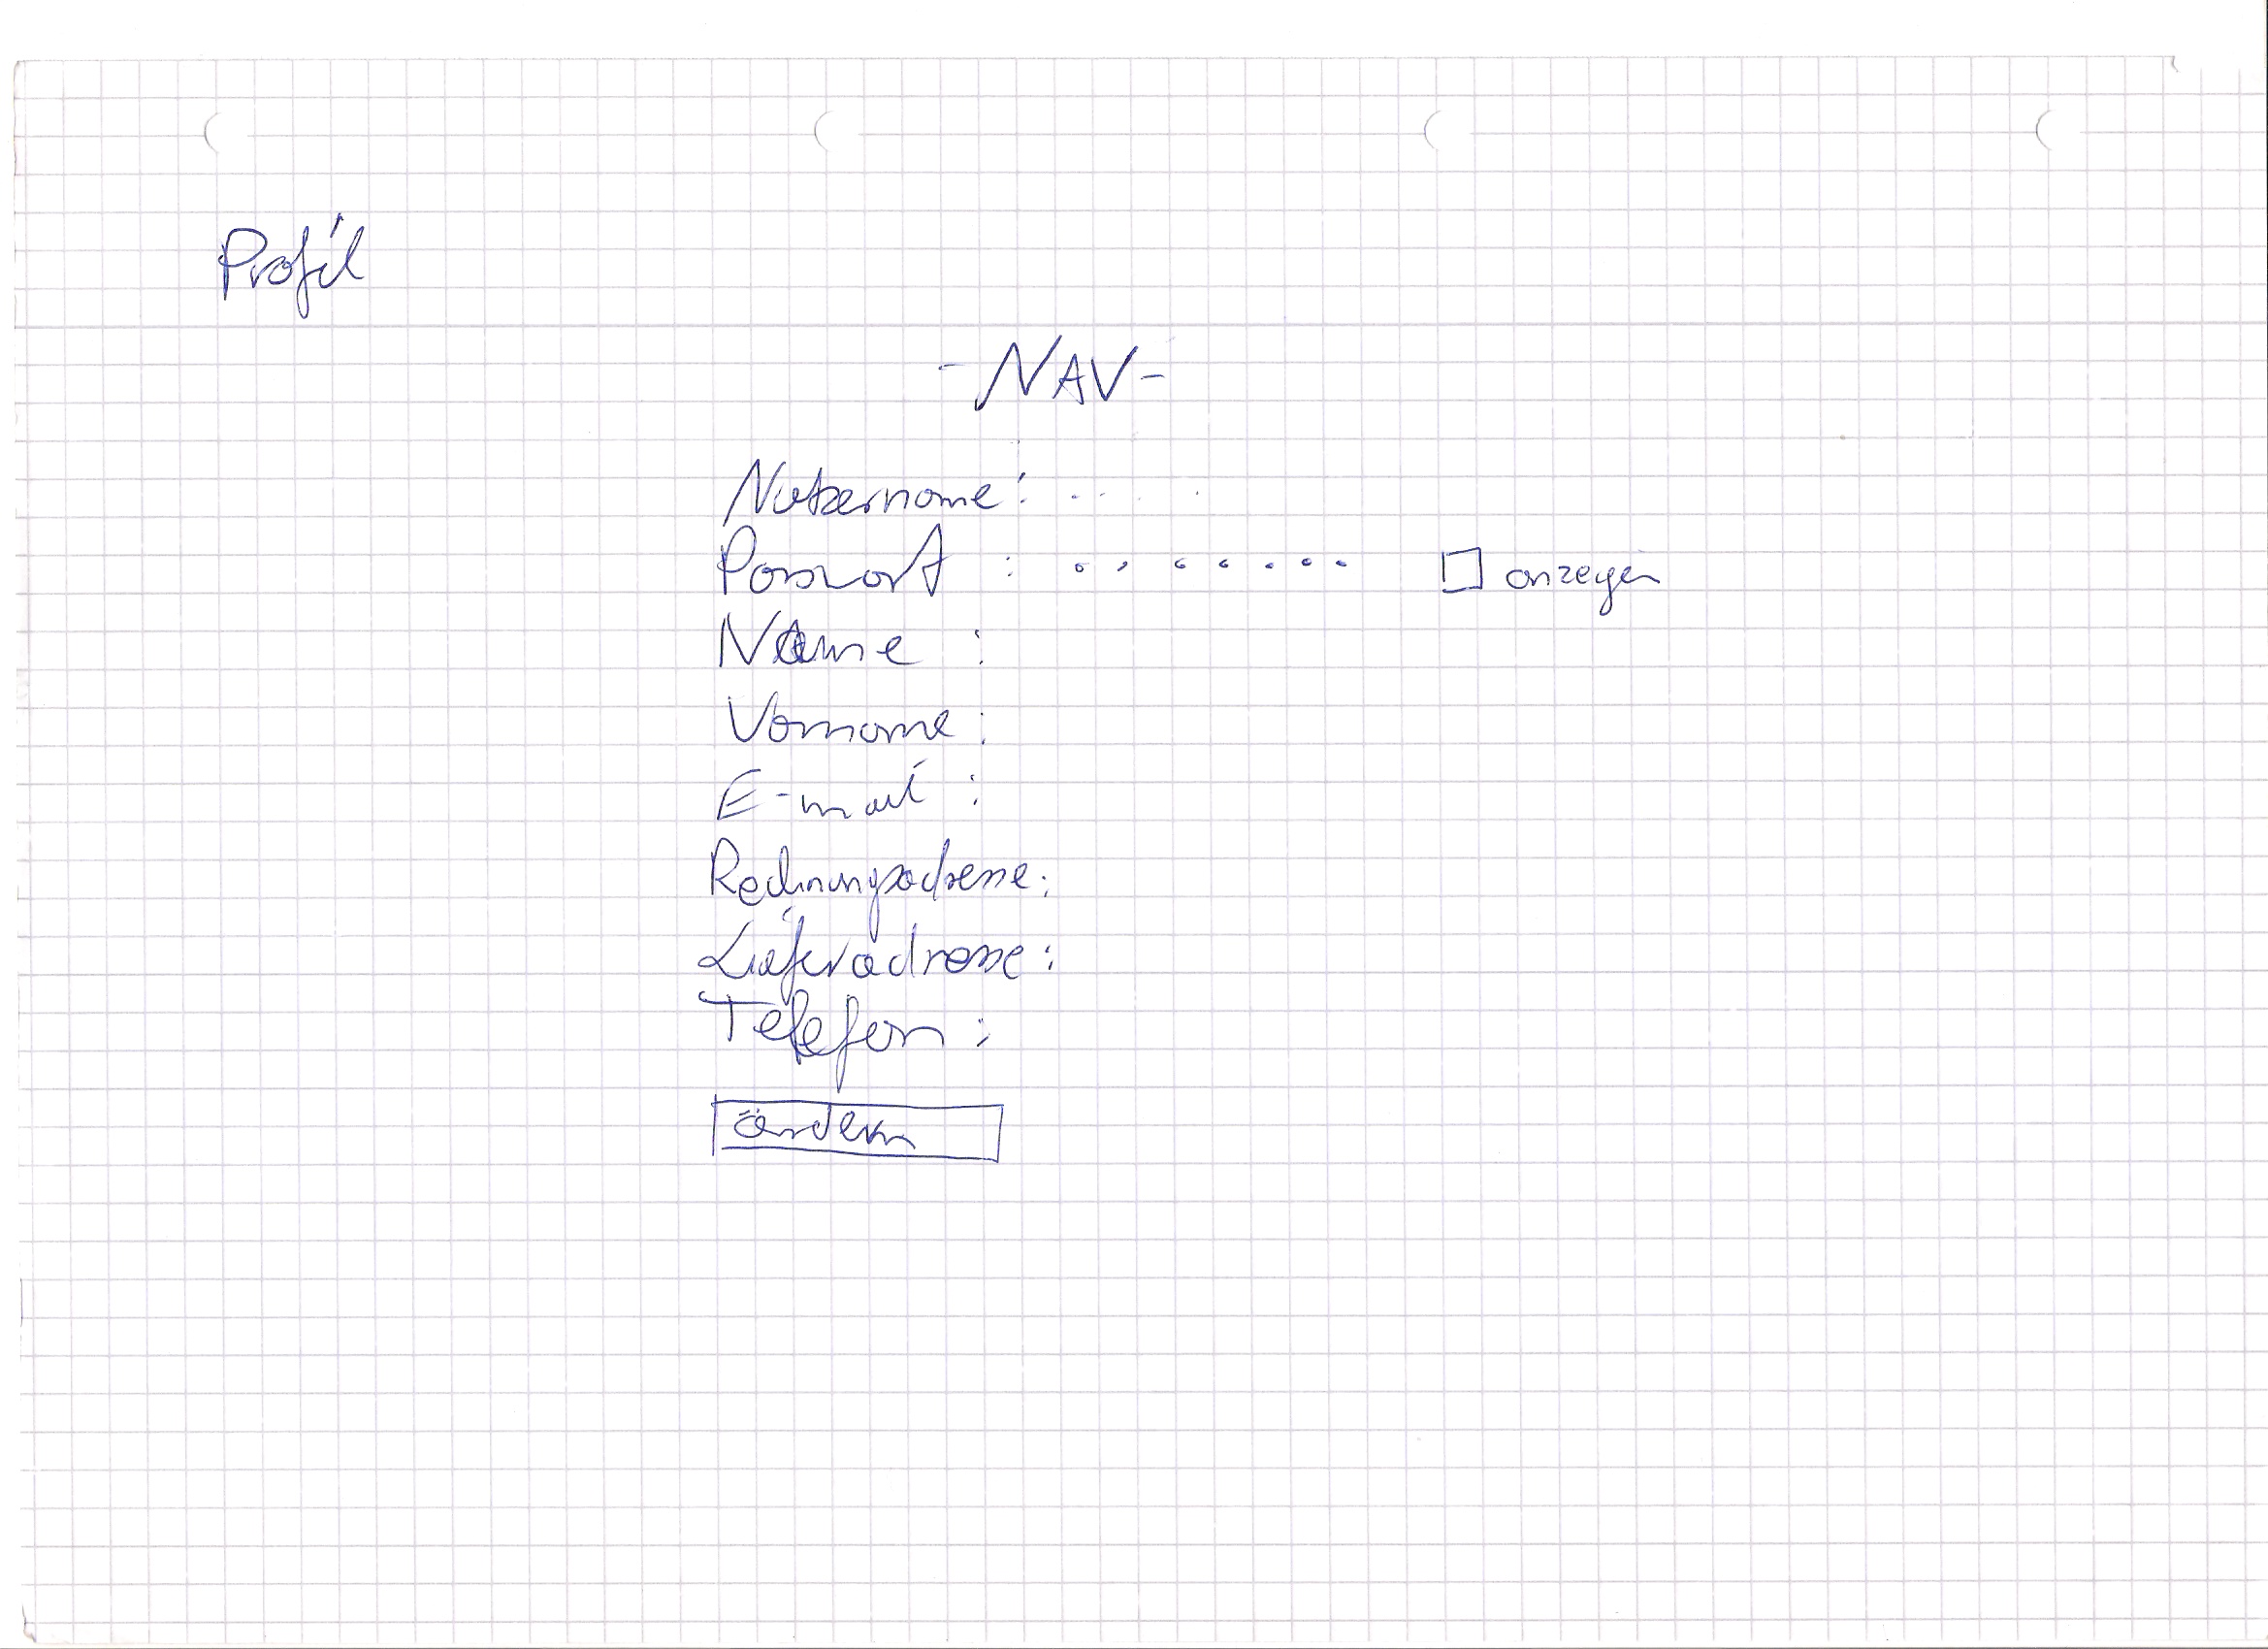 Profil
- NAV -
Nutzername: .. . .
Passwort : . . . . . . . □ anzeigen
Name :
Vorname :
E-mail :
Rechnungsadresse:
Lieferadresse:
Telefon :
ändern